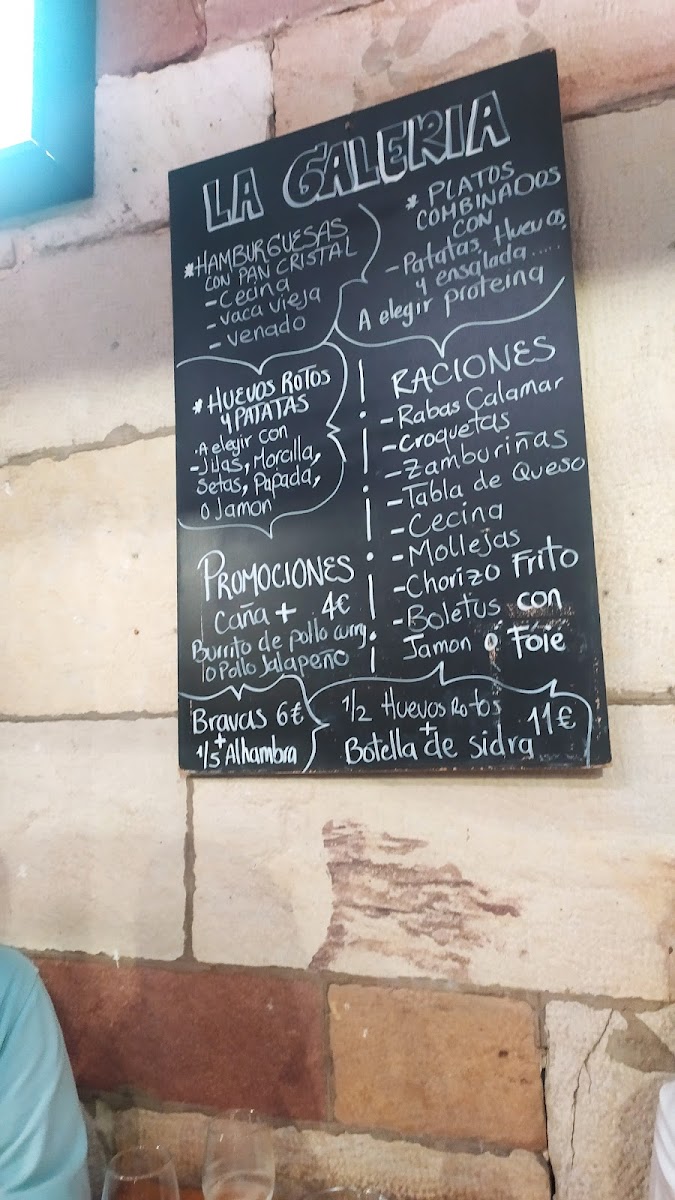 LA GALERIA
*HAMBURGUESAS
CON PAN CRISTAL
-Cecina
-vaca vieja
-venado
* PLATOS
COMBINADOS
CON
-Patatas, Huevos,
y ensalada.....
A elegir proteina
*HUEVOS ROTOS
y PATATAS
.A elegir con
-Jijas, Morcilla,
Setas, Papada,
O Jamon
RACIONES
-Rabas Calamar
-Croquetas
-Zamburiñas
-Tabla de Queso
-Cecina
-Mollejas
-Chorizo Frito
-Boletus con
Jamon ó Foie
PROMOCIONES
Caña + 4€
Burrito de pollo curry
o Pollo Jalapeño
Bravas 6€
+
1/5 Alhambra
1/2 Huevos Rotos
+
Botella de sidra
11€